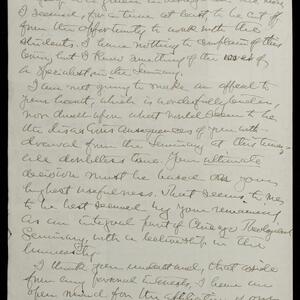 I seemed, for a time at least, to be cut off
from the opportunity to work with the
students. I have nothing to complain of this
but I know something of the
a specialist in the Seminary.
I am not going to make an appeal to
your heart, which is wonderfully
nor dwell upon what would seem to be
the disastrous consequences of your with-
drawal from the Seminary at this time,
Your ultimate
decision must be based on your
highest usefulness. That seems to me
to be best secured by your remaining
as an integral part of Chicago Theological
Seminary, with a relationship in the
University.
I think you understand, that aside
from any personal interests, I have an
open mind